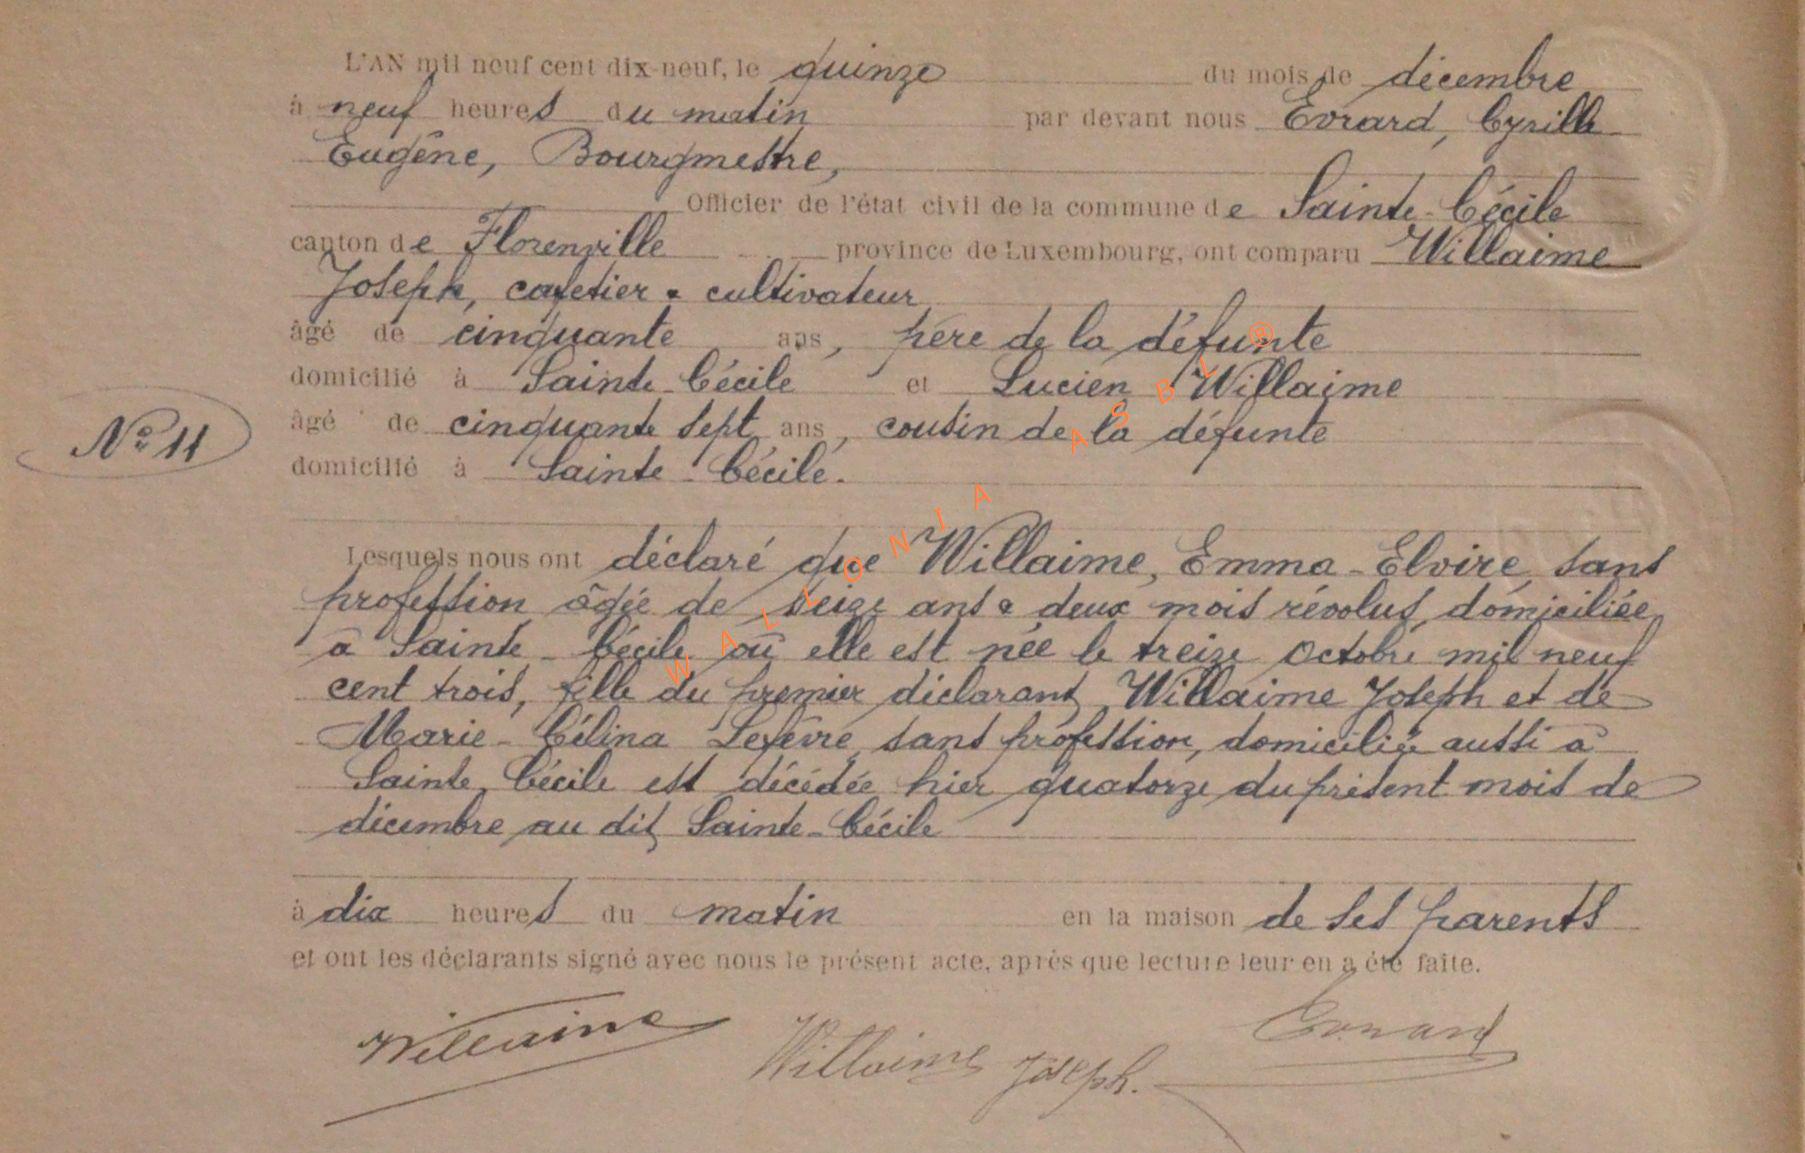 L'AN mil neuf cent dix-neuf, le quinze du mois de décembre
à neuf heures du matin par devant nous Evrard, Cyrille
Eugène, Bourgmestre,
Officier de l'état civil de la commune de Sainte-Cécile
canton de Florenville province de Luxembourg, ont comparu Willaime
Joseph, cafetier & cultivateur
âgé de cinquante ans, père de la défunte
domicilié à Sainte-Cécile et Lucien Willaime
âgé de cinquante sept ans, cousin de la défunte
Nº 11
domicilié à Sainte-Cécile.
Lesquels nous ont déclaré que Willaime, Emma-Elvire, sans
profession, âgée de seize ans & deux mois révolus, domiciliée
à Sainte-Cécile où elle est née le treize octobre mil neuf
cent trois, fille du premier déclarant, Willaime Joseph et de
Marie-Célina Lefèvre, sans profession, domiciliée aussi à
Sainte-Cécile est décédée hier quatorze du présent mois de
décembre au dit Sainte-Cécile
à dix heures du matin en la maison de ses parents
et ont les déclarants signé avec nous le présent acte, après que lecture leur en a été faite.
Willaime Willaime Joseph. Evrard
WALLONIA ASBL ®